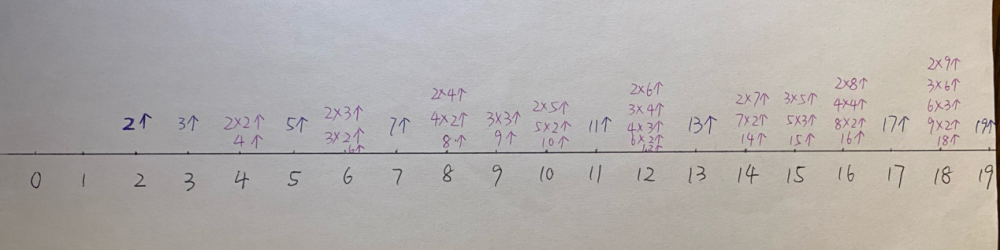 2↑
3↑
2×2↑
4↑
5↑
2×3↑
3×2↑
6↑
7↑
2×4↑
4×2↑
8↑
3×3↑
9↑
2×5↑
5×2↑
10↑
11↑
2×6↑
3×4↑
4×3↑
6×2↑
12↑
13↑
2×7↑
7×2↑
14↑
3×5↑
5×3↑
15↑
2×8↑
4×4↑
8×2↑
16↑
17↑
2×9↑
3×6↑
6×3↑
9×2↑
18↑
19↑
0 1 2 3 4 5 6 7 8 9 10 11 12 13 14 15 16 17 18 19